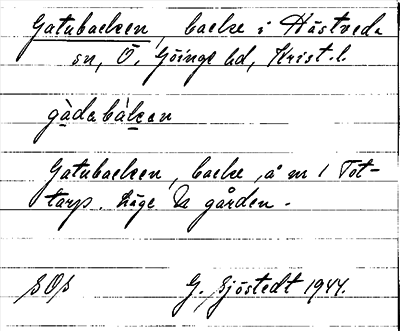 Gatubacken, backe i Hästveda
sn, Ö. Göinge hd, Krist. l.
gàdabàkan
Gatubacken, backe, å nr 1 Tot-
tarp. Läge Ca gården.
SOS G. Sjöstedt 1944.